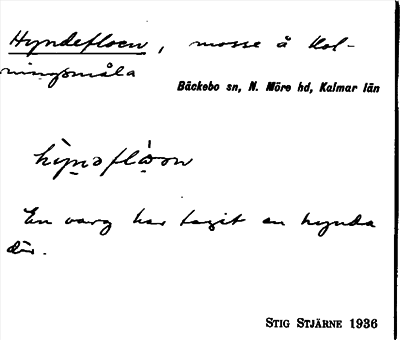 Hyndefloen, mosse å Kol-
ningsmåla
Bäckebo sn, N. Möre hd, Kalmar län
hỳṇəflòən
En varg har tagit en hynda
där.
STIG STJÄRNE 1936